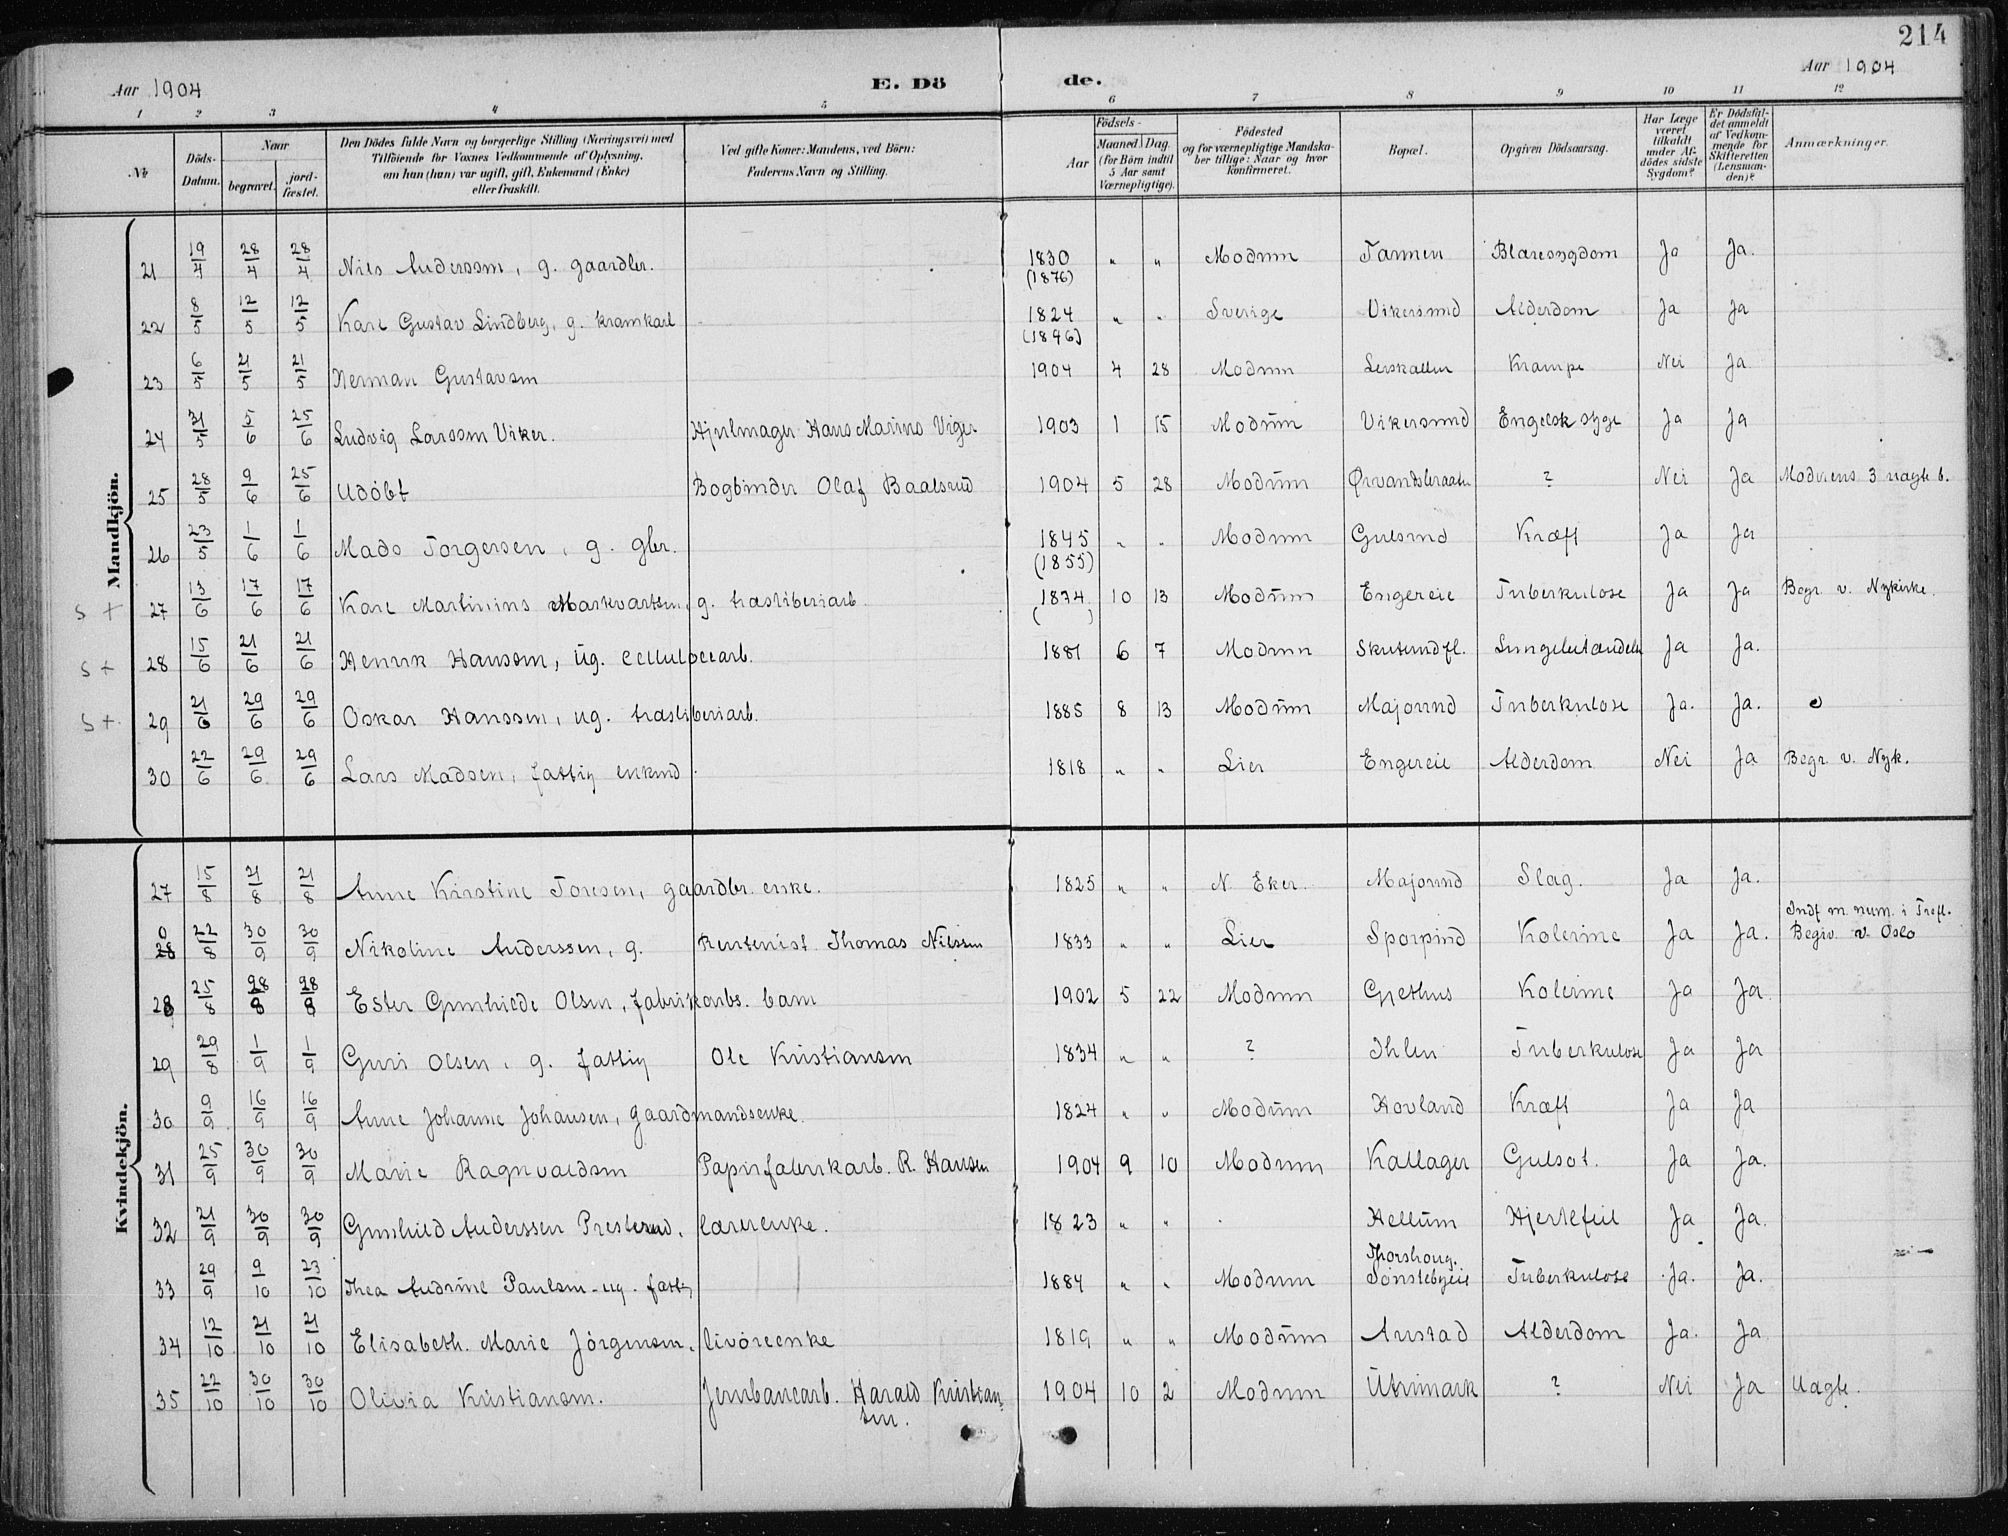 214
Aar 1904 E. Dö de. Aar 1904
1 2 3 4 5 6 7 8 9 10 11 12
№ Döds-Datum. Naar begravet. jordfæstet. Den Dödes fulde Navn og borgerlige Stilling (Næringsvei) med Tilföiende for Voxnes Vedkommende af Oplysning, om han (hun) var ugift, gift, Enkemand (Enke) eller fraskilt. Ved gifte Koner: Mandens, ved Börn: Faderens Navn og Stilling. Födsels- Aar Maaned. Dag. (for Börn indtil 5 Aar samt Værnepligtige). Födested og for værnepligtige Mandskaber tillige: Naar og hvor konfirmeret. Bopæl. Opgiven Dödsaarsag. Har Læge været tilkaldt under Afdödes sidste Sygdom? Er Dödsfaldet anmeldt af Vedkommende for Skifteretten (Lensmanden)? Anmærkninger.
Mandkjön.
21 19/4 28/4 28/4 Nils Anderssen, g. gaardbr. 1830 (1876) " " Modum Tannen Blæresygdom Ja Ja.
22 8/5 12/5 12/5 Karl Gustav Lindberg, g. kramkarl 1824 (1846) " " Sverige Vikersund Alderdom Ja Ja
23 6/5 21/5 21/5 Herman Gustavsen 1904 4 28 Modum Krampe Nei Ja
24 31/5 5/6 25/6 Ludvig Larssen Viker. Hjulmager Hans Marius Viger 1903 1 15 Modum Vikersund Engelsk syge Ja Ja
25 28/5 9/6 25/6 Udöbt Bogbinder Olaf Baalsrud 1904 5 28 Modum ? Nei Ja Moderens 3 uægte b.
26 23/5 1/6 1/6 Mads Torgersen, g. gbr. 1845 (1855) " " Modum Gulsrud Kræft Ja Ja
s + 27 13/6 17/6 17/6 Karl Martinius Markvartsen, g. træsliberiarb. 1874 ( ) 10 13 Modum Engereie Tuberkulose Ja Ja Begr. v. Nykirke.
s + 28 15/6 21/6 21/6 Henrik Hanssen, ug. cellulosearb. 1881 6 7 Modum Skutsundfl. Lungebetændelse Ja Ja.
s + 29 21/6 29/6 29/6 Oskar Hanssen, ug. træsliberiarb. 1885 8 13 Modum Majorund Tuberkulose Ja. Ja.
30 22/6 29/6 29/6 Lars Madsen, fattig enkmd. 1818 " " Lier Engereie Alderdom Nei Ja Begr. v. Nyk.
Kvindekjön.
27 15/8 21/8 21/8 Anne Kirstine Toresen, gaardbr. enke. 1825 " " N. Eker. Majorund Slag. Ja Ja.
0 28 22/8 30/9 30/9 Nikoline Anderssen, g. Rentenist Thomas Nilssen 1833 " " Lier Sporpind Kolerine Ja Ja. Indf. m. num. i Begrv. v. Oslo
28 25/8 28/8 28/8 Ester Gunhilde Olsen, fabrikarbs. barn 1902 5 22 Modum Gjethus Kolerine Ja Ja
29 29/8 1/9 1/9 Guri Olsen, g. fattig Ole Kristiansen 1834 " " ? Ihlen Tuberkulose Ja Ja
30 9/9 16/9 16/9 Anne Johanne Johansen, gaardmandsenke. 1824 " " Modum Hovland Kræft Ja Ja
31 25/9 30/9 30/9 Marie Ragnvaldsen Papirfabrikarb. R. Hansen 1904 9 10 Modum Kallager Gulsot. Ja Ja.
32 21/9 30/9 30/9 Gunhild Anderssen Presterud, lærerenke. 1823 " " . Hellum Hjertefeil Ja Ja.
33 29/9 9/10 23/10 Thea Andrine Paulsen - ug. fattig 1884 " " Modum Thorshoug. Sønstebyeie Tuberkulose Ja. Ja.
34 12/10 21/10 21/10 Elisabeth Marie Jörgensen, livöreenke 1819 " " Modum Austad Alderdom Ja. Ja
35 22/10 30/10 30/10 Olivia Kristiansen. Jernbanearb. Harald Kristiansen. 1904 10 2 Modum Utrimark ? Nei Ja Uægte.